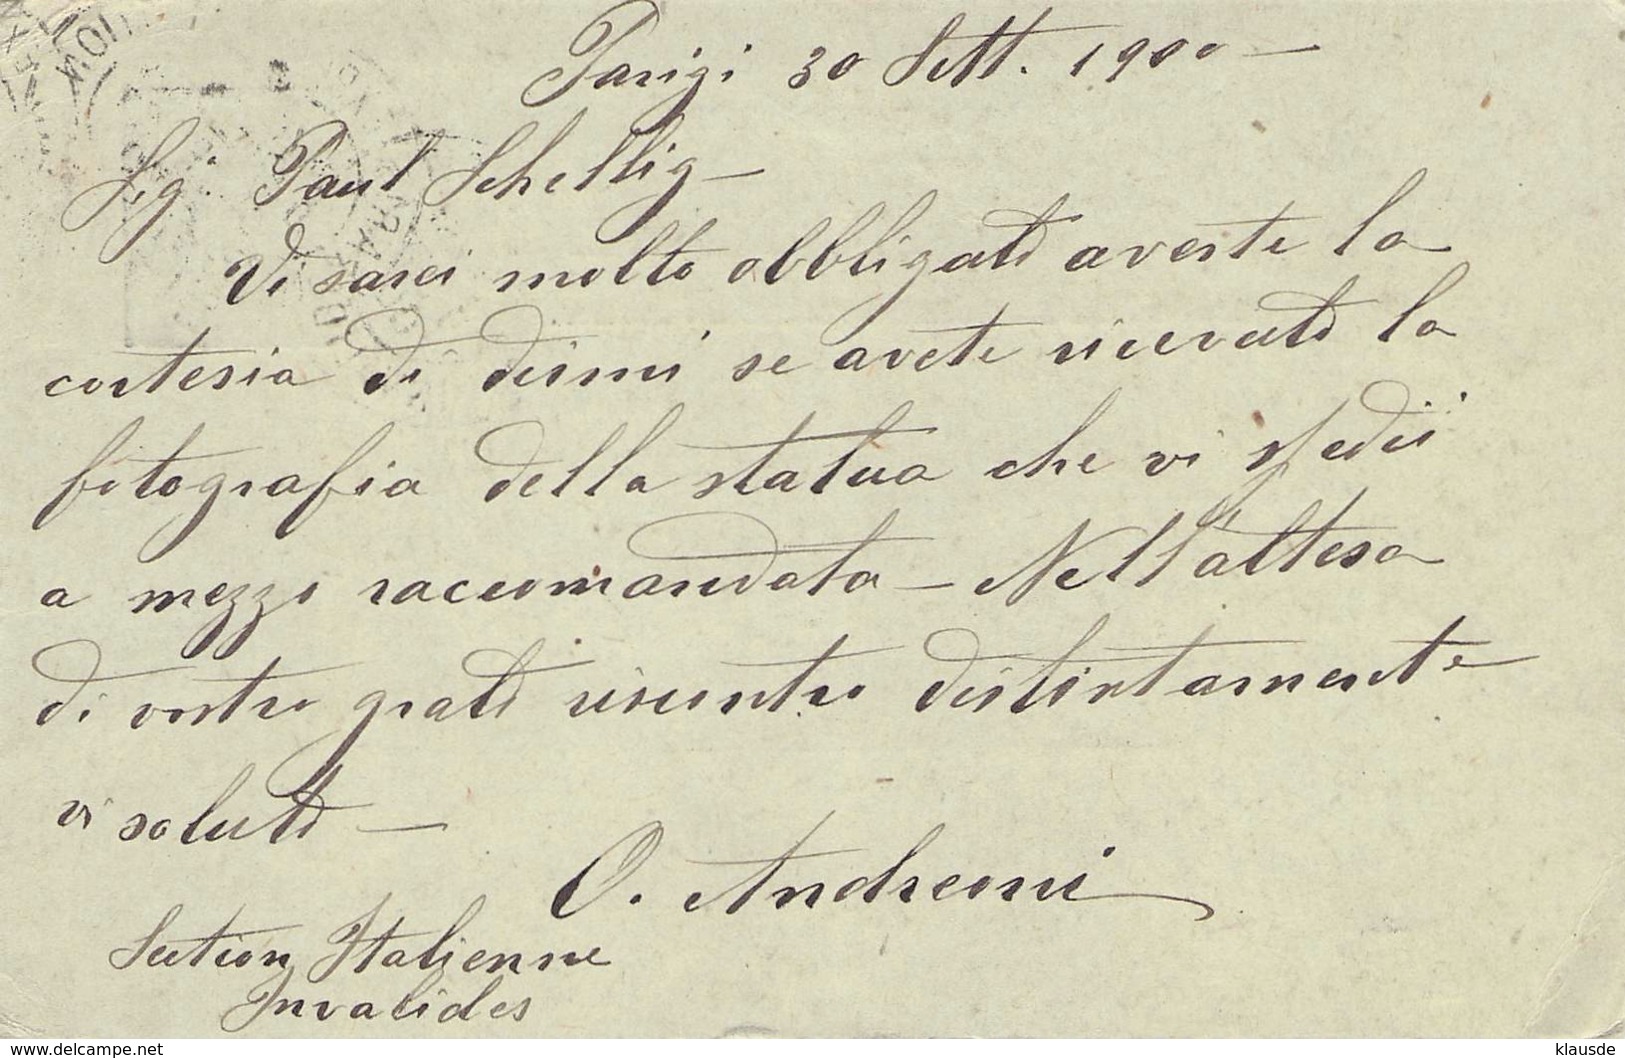 Parigi 30 Sett. 1900 —
Sig. Paul Schellig —
Vi sarei molto obbligato avreste la
cortesia di dirmi se avete ricevuto la
fotografia della statua che vi spedii
a mezzo raccomandata — Nell'attesa
di vostro grato riscontro distintamente
vi saluto —
O. Andreoni
Section Italienne
Invalides
www.delcampe.net
klausde